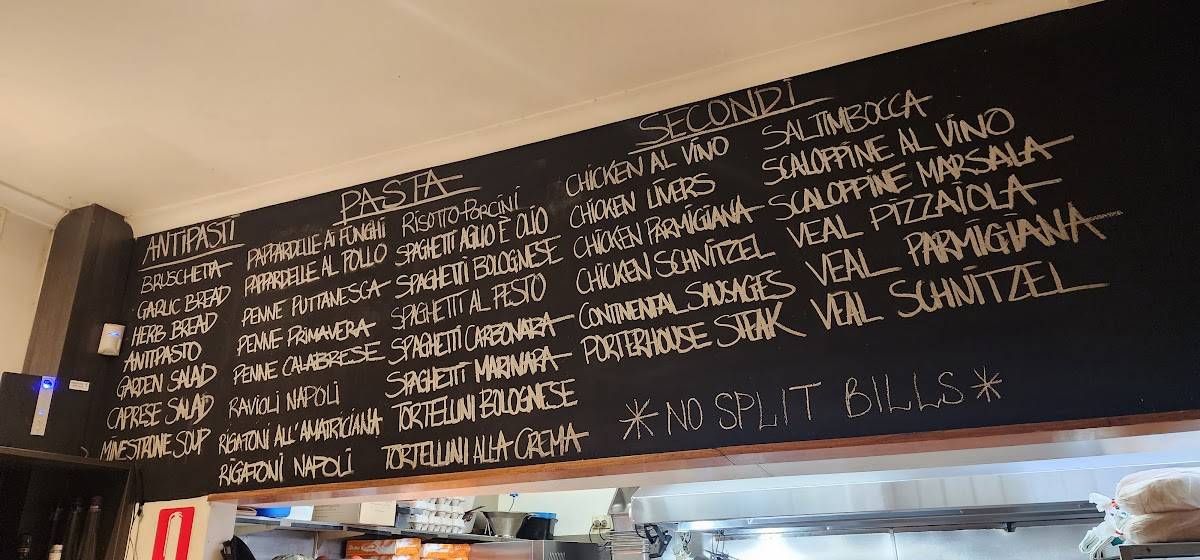 ANTIPASTI
BRUSCHETTA
GARLIC BREAD
HERB BREAD
ANTIPASTO
GARDEN SALAD
CAPRESE SALAD
MINESTRONE SOUP
PASTA
PAPPARDELLE AI FUNGHI
PAPPARDELLE AL POLLO
PENNE PUTTANESCA
PENNE PRIMAVERA
PENNE CALABRESE
RAVIOLI NAPOLI
RIGATONI ALL'AMATRICIANA
RIGATONI NAPOLI
RISOTTO PORCINI
SPAGHETTI AGLIO È OLIO
SPAGHETTI BOLOGNESE
SPAGHETTI AL PESTO
SPAGHETTI CARBONARA
SPAGHETTI MARINARA
TORTELLINI BOLOGNESE
TORTELLINI ALLA CREMA
SECONDI
CHICKEN AL VINO
CHICKEN LIVERS
CHICKEN PARMIGIANA
CHICKEN SCHNITZEL
CONTINENTAL SAUSAGES
PORTERHOUSE STEAK
SALTIMBOCCA
SCALOPPINE AL VINO
SCALOPPINE MARSALA
VEAL PIZZAIOLA
VEAL PARMIGIANA
VEAL SCHNITZEL
*NO SPLIT BILLS*